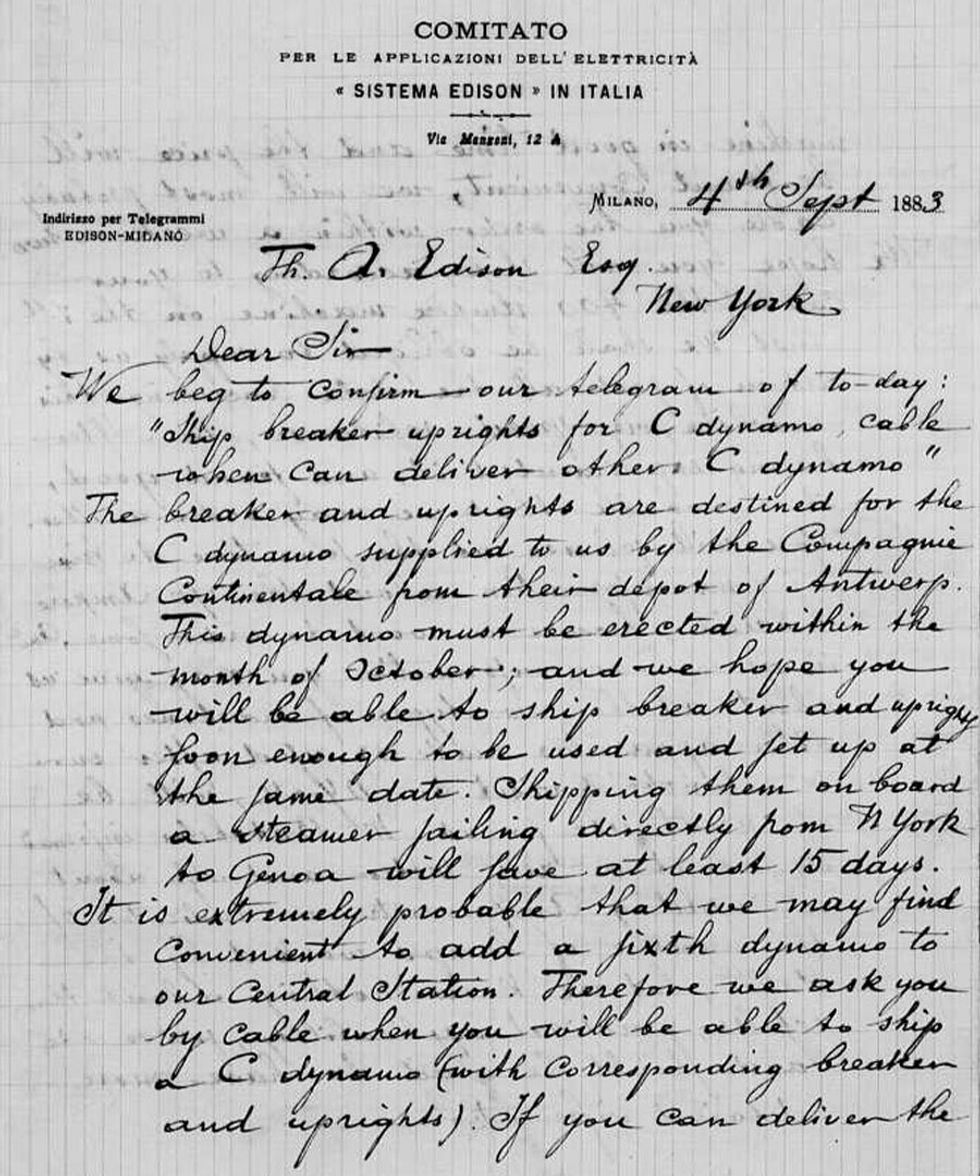 COMITATO
PER LE APPLICAZIONI DELL'ELETTRICITÀ
« SISTEMA EDISON » IN ITALIA
Via Manzoni, 12 A
MILANO, 4th Sept 1883
Indirizzo per Telegrammi
EDISON-MILANO
Th. A. Edison Esq.
New York
Dear Sir
We beg to confirm our telegram of to-day:
"Ship breaker uprights for C dynamo, cable
when can deliver other C dynamo"
The breaker and uprights are destined for the
C dynamo supplied to us by the Compagnie
Continentale from their depot of Antwerp.
This dynamo must be erected within the
month of October; and we hope you
will be able to ship breaker and uprights
soon enough to be used and set up at
the same date. Shipping them on board
a steamer sailing directly from N York
to Genoa will save at least 15 days.
It is extremely probable that we may find
convenient to add a sixth dynamo to
our Central Station. Therefore we ask you
by cable when you will be able to ship
a C dynamo (with corresponding breaker
and uprights). If you can deliver the